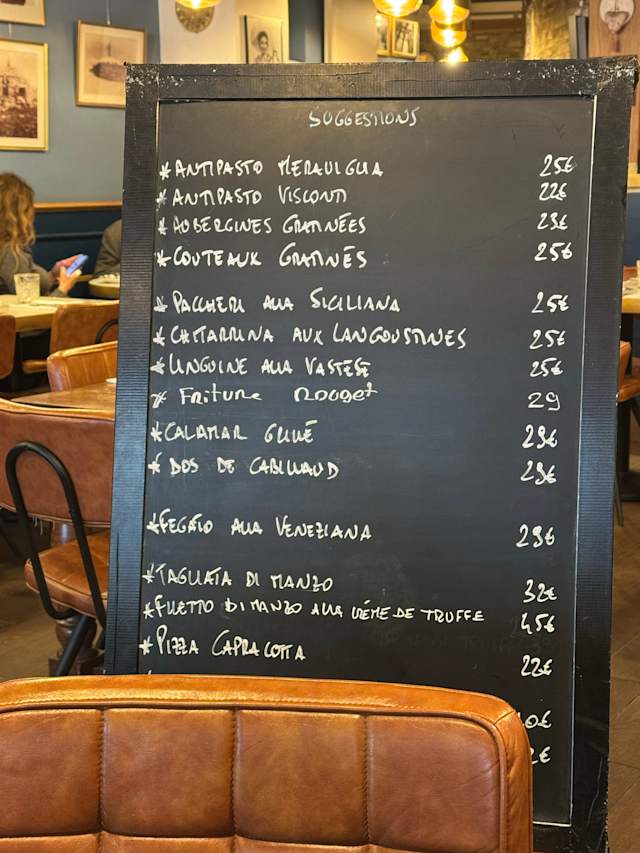 SUGGESTIONS
*ANTIPASTO MERAVIGLIA 25€
*ANTIPASTO VISCONTI 22€
*AUBERGINES GRATINÉES 23€
*COUTEAUX GRATINÉS 25€
*PACCHERI ALLA SICILIANA 25€
*CHITARRINA AUX LANGOUSTINES 25€
*LINGUINE ALLA VASTESE 25€
* FRITURE ROUGET 29
*CALAMAR GRILLÉ 29€
*DOS DE CABILLAUD 29€
*FEGATO ALLA VENEZIANA 29€
*TAGLIATA DI MANZO 32€
*FILETTO DI MANZO ALLA CRÈME DE TRUFFE 45€
*PIZZA CAPRACOTTA 22€